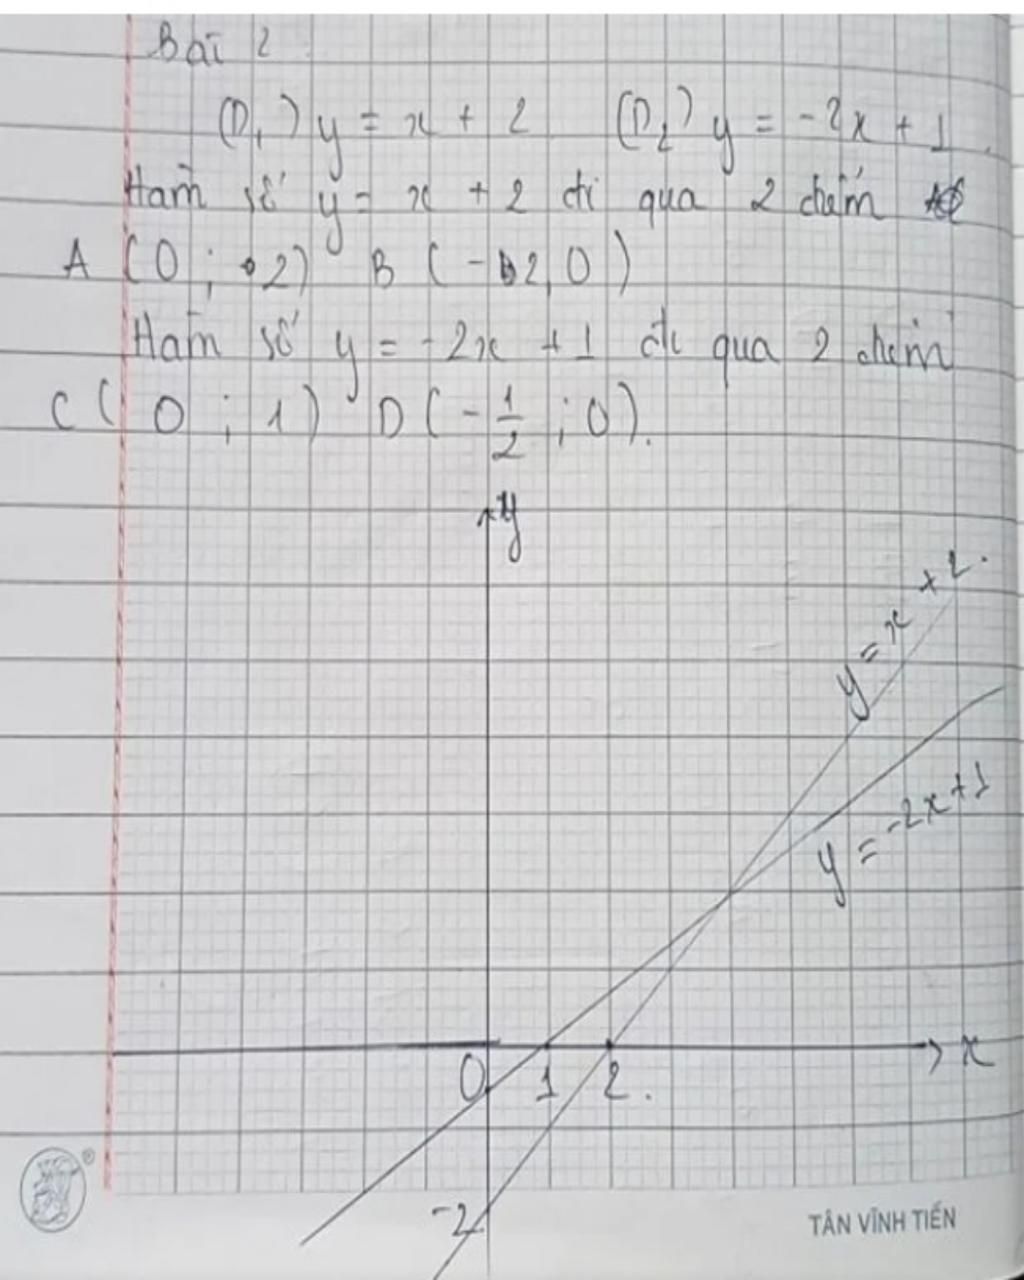 Bài 2
(D₁) y = x + 2 (D₂) y = -2x + 1
Hàm số y = x + 2 đi qua 2 điểm
A (0 ; 2) B (-2, 0)
Hàm số y = -2x + 1 đi qua 2 điểm
C (0 ; 1) D (-1/2 ; 0).
y
y = x + 2.
y = -2x + 1
0 1 2. x
-2
®
TÂN VĨNH TIẾN